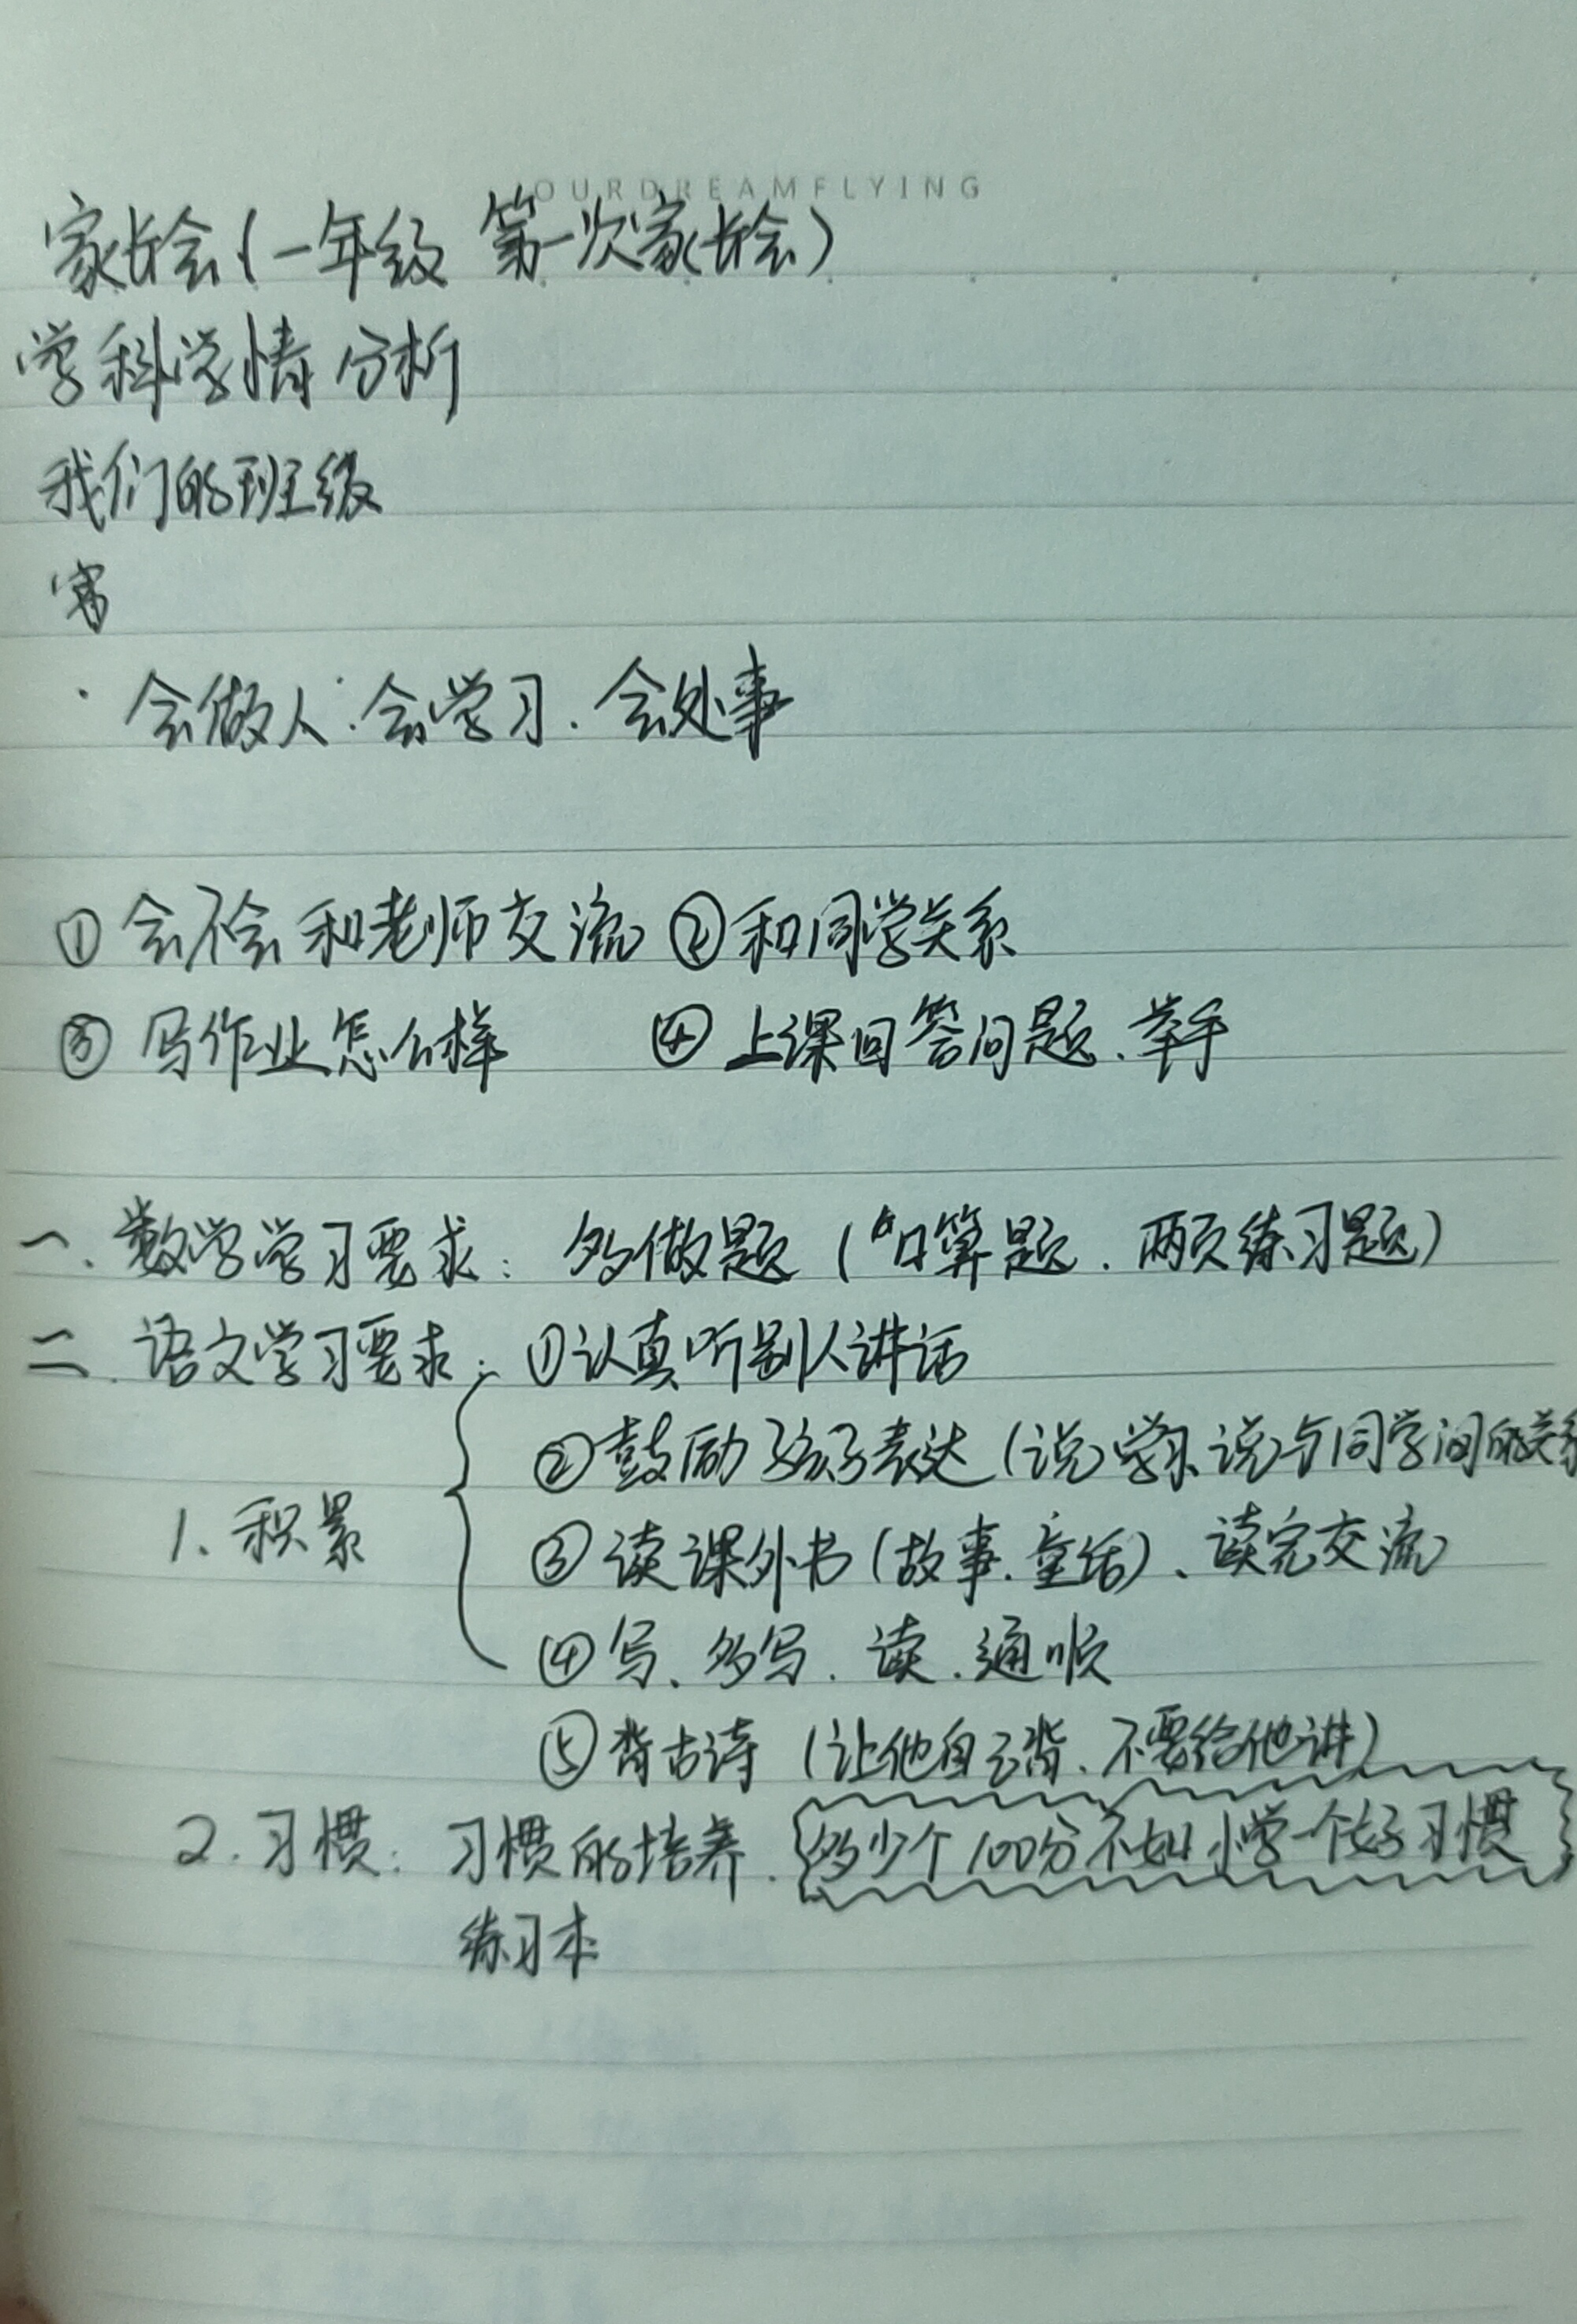 OURDREAMFLYING
家长会(一年级 第一次家长会)
学科学情分析
我们的班级
会做人.会学习.会处事
①会不会和老师交流 ②和同学关系
③写作业怎么样 ④上课回答问题、举手
一、数学学习要求:多做题(口算题、两页练习题)
二、语文学习要求:①认真听别人讲话
②鼓励孩子表达(说学习、说与同学间的关系
1、积累 ③读课外书(故事.童话)、读完交流
④写、多写.读.通顺
⑤背古诗(让他自己背、不要给他讲)
2.习惯:习惯的培养.多少个100分不如小学一个好习惯
练习本